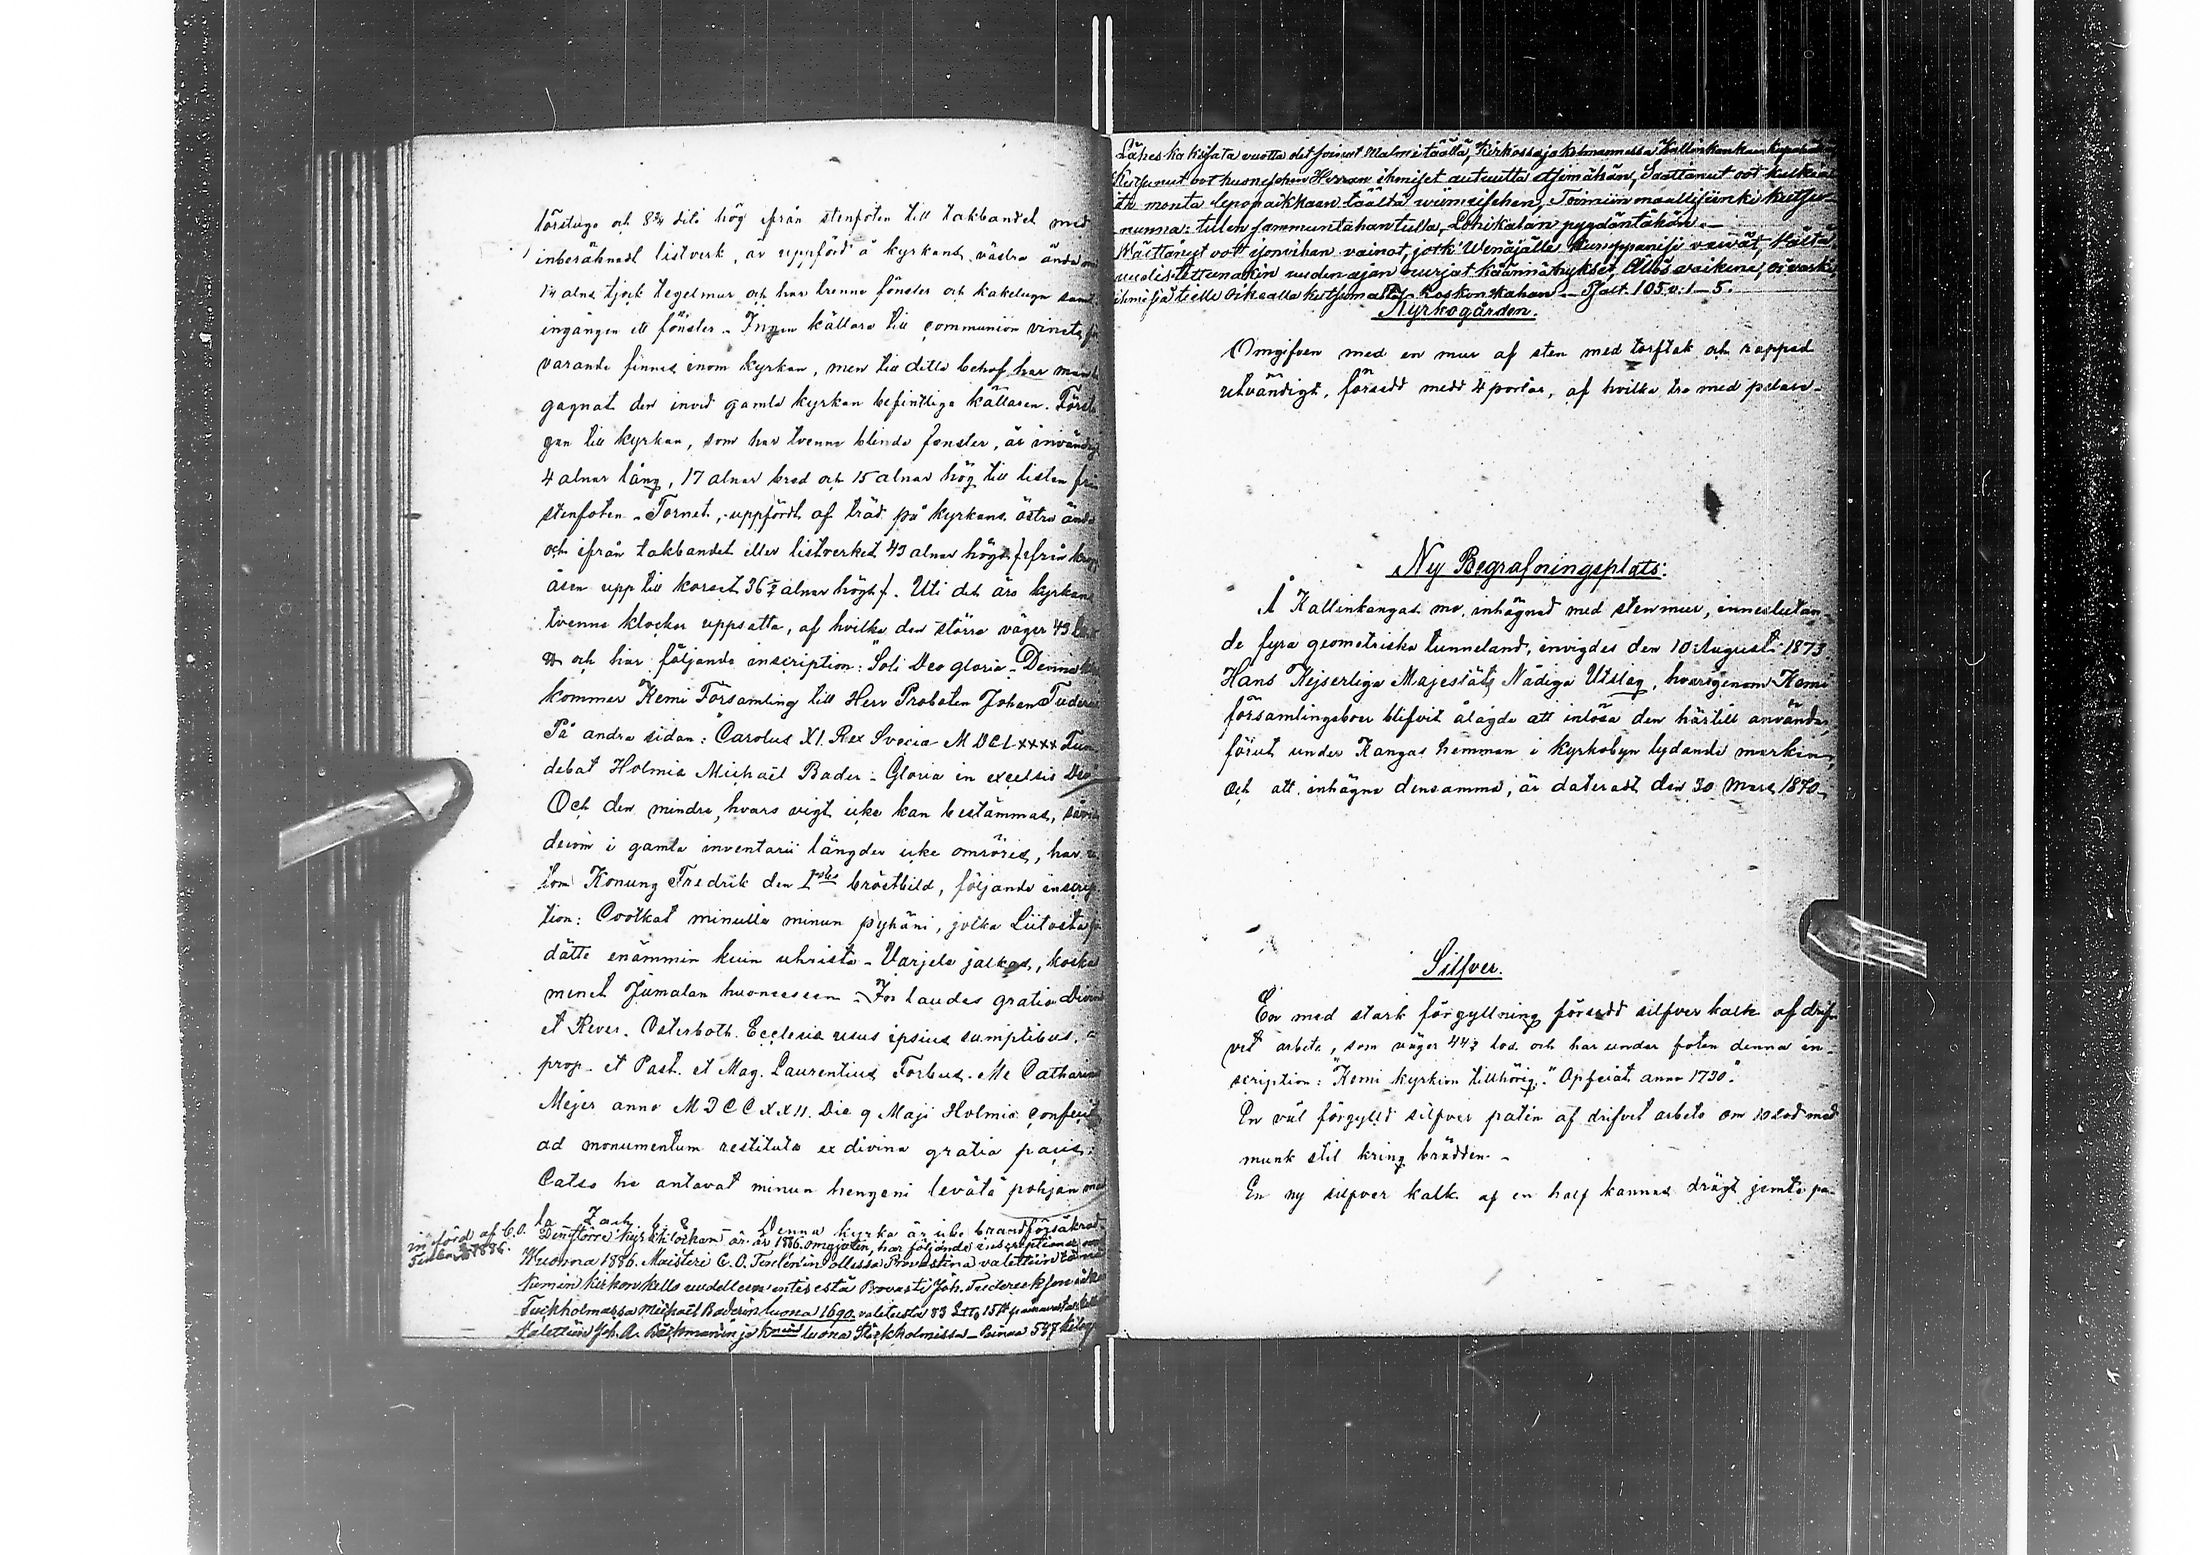 förstuga och 8¾ dito hög ifrån stenfoten till takbandet med
inberäknadt listverk, är uppförd å kyrkans västra ända
1¼ alns tjock tegelmur och har trenne fönster och kakelugn samt
ingången ett fönster. Ingen källare till communion vinets
varande finnes inom kyrkan, men till detta behof har man
gagnat den invid gamla kyrkan befintliga källaren. Förstu
gan till kyrkan, som har tvenne blinda fönster, är invändigt
4 alnar lång, 17 alnar bred och 15 alnar hög till listen från
stenfoten. Tornet, uppfördt af träd på kyrkans östra ända
och ifrån takbandet eller listverket 49 alnar högt /ifrån
åsen upp till korset 36½ alnar högt/. Uti det äro kyrkans
tvenne klockor uppsatta, af hvilka den större väger 49
och har följande inscription: "Soli Deo gloria. Denna
kommer Kemi Församling till Herr Probsten Johan Tuderus
På andra sidan: "Carolus XI. Rex Svecia MDCLXXXX Fun
debat Holmia Michaël Bader. Gloria in excelsis Deo"
Och den mindre, hvars vigt icke kan bestämmas,
deom i gamla inventarii längder icke omröres, har
som Konung Fredrik den Istes bröstbild, följande inscrip
tion: Cootkat minulle minun pyhäni, jotka Liitosta
dätte enämmin kuin uhrista. Varjele jalkas, koskas
menet Jumalan huoneseen. In laudes gratia Divina
et Rever. Osterboth. Ecclesia usus ipsius sumptibus,
prop. et Past. et Mag. Laurentius Forbus. Me Catharina
Mejer anno MDCCXXII. Die 9 Maji Holmia conficit
ad monumentum restituta ex divina gratia pacis:
Catso he antavat minun hengeni levätä pohjan maal
la Zach. 6. 8. Denna kyrka är icke brandförsäkrad.
införd af C. O.
1886.
Den större kyrkklockan är år 1886 omgjuten, har följande inscription:
Wuonna 1886. Maisteri C. O. Tuderin ollessa Provastina valettiin tämä
Kemin kirkon kello uudelleen entisestä Provasti Joh. Tuderuksen
Tuckholmassa Michaël Baderin luona 1690. valetusta 83 L℔ 15 ℔ painavasta
Valettiin Joh. A. Bäckmanin ja kmni luona Stockholmissa. Painaa 547 kilog
Lähes kaksisata vuotta olet soinut Malmi täällä, Kirkossa ja kolmannessa Kallinkankaan
Kutsunut oot huoneshen Herran ihmiset autuutta etsimähän, Saattanut oot kulkian
monta lepopaikkaan täältä viimeisehen, Toimiin maallisiinki kutsu
nunna: tullen sammuntahan tulla, Lohikalan pyydäntähän.
Näittänyt oot isonvihan vainot, josk' Wenäjälle kumppanisi veivät, täältä
uudistettunakin uuden ajan nurjat käännähykset, Ällös vaikene,
ihmisiä tielle oikealle kutsumasta Koskonkahan. Psalt. 105 v. 1–5.
Kyrkogården.
Omgifven med en mur af sten med torftak och rappad
utvändigt, försedd medd 4 portar, af hvilka tre med pelare.
Ny Begrafningsplats:
Å Kallinkangas mo, inhägnad med stenmur, inneslutan
de fyra geometriska tunneland, invigdes den 10 Augusti 1873.
Hans Kejserliga Majestäts Nådiga Utslag, hvarigenom Kemi
församlingsboer blifvit ålagde att inlösa den härtill använda,
förut under Kangas hemman i kyrkobyn lydande marken,
och att inhägna densamma, är daterat den 30 Mars 1870.
Silfver.
En med stark förgyllning försedd silfver kalk af drif
vet arbete, som väger 44½ lod. och har under foten denna in
scription: "Kemi kyrkion tillhörig." Opfeiat anno 1730."
En väl förgylld silfver patén af drifvet arbete om 10 Lod med
munk stil kring brädden.
En ny silfver kalk af en half kannas drägt jemte pa